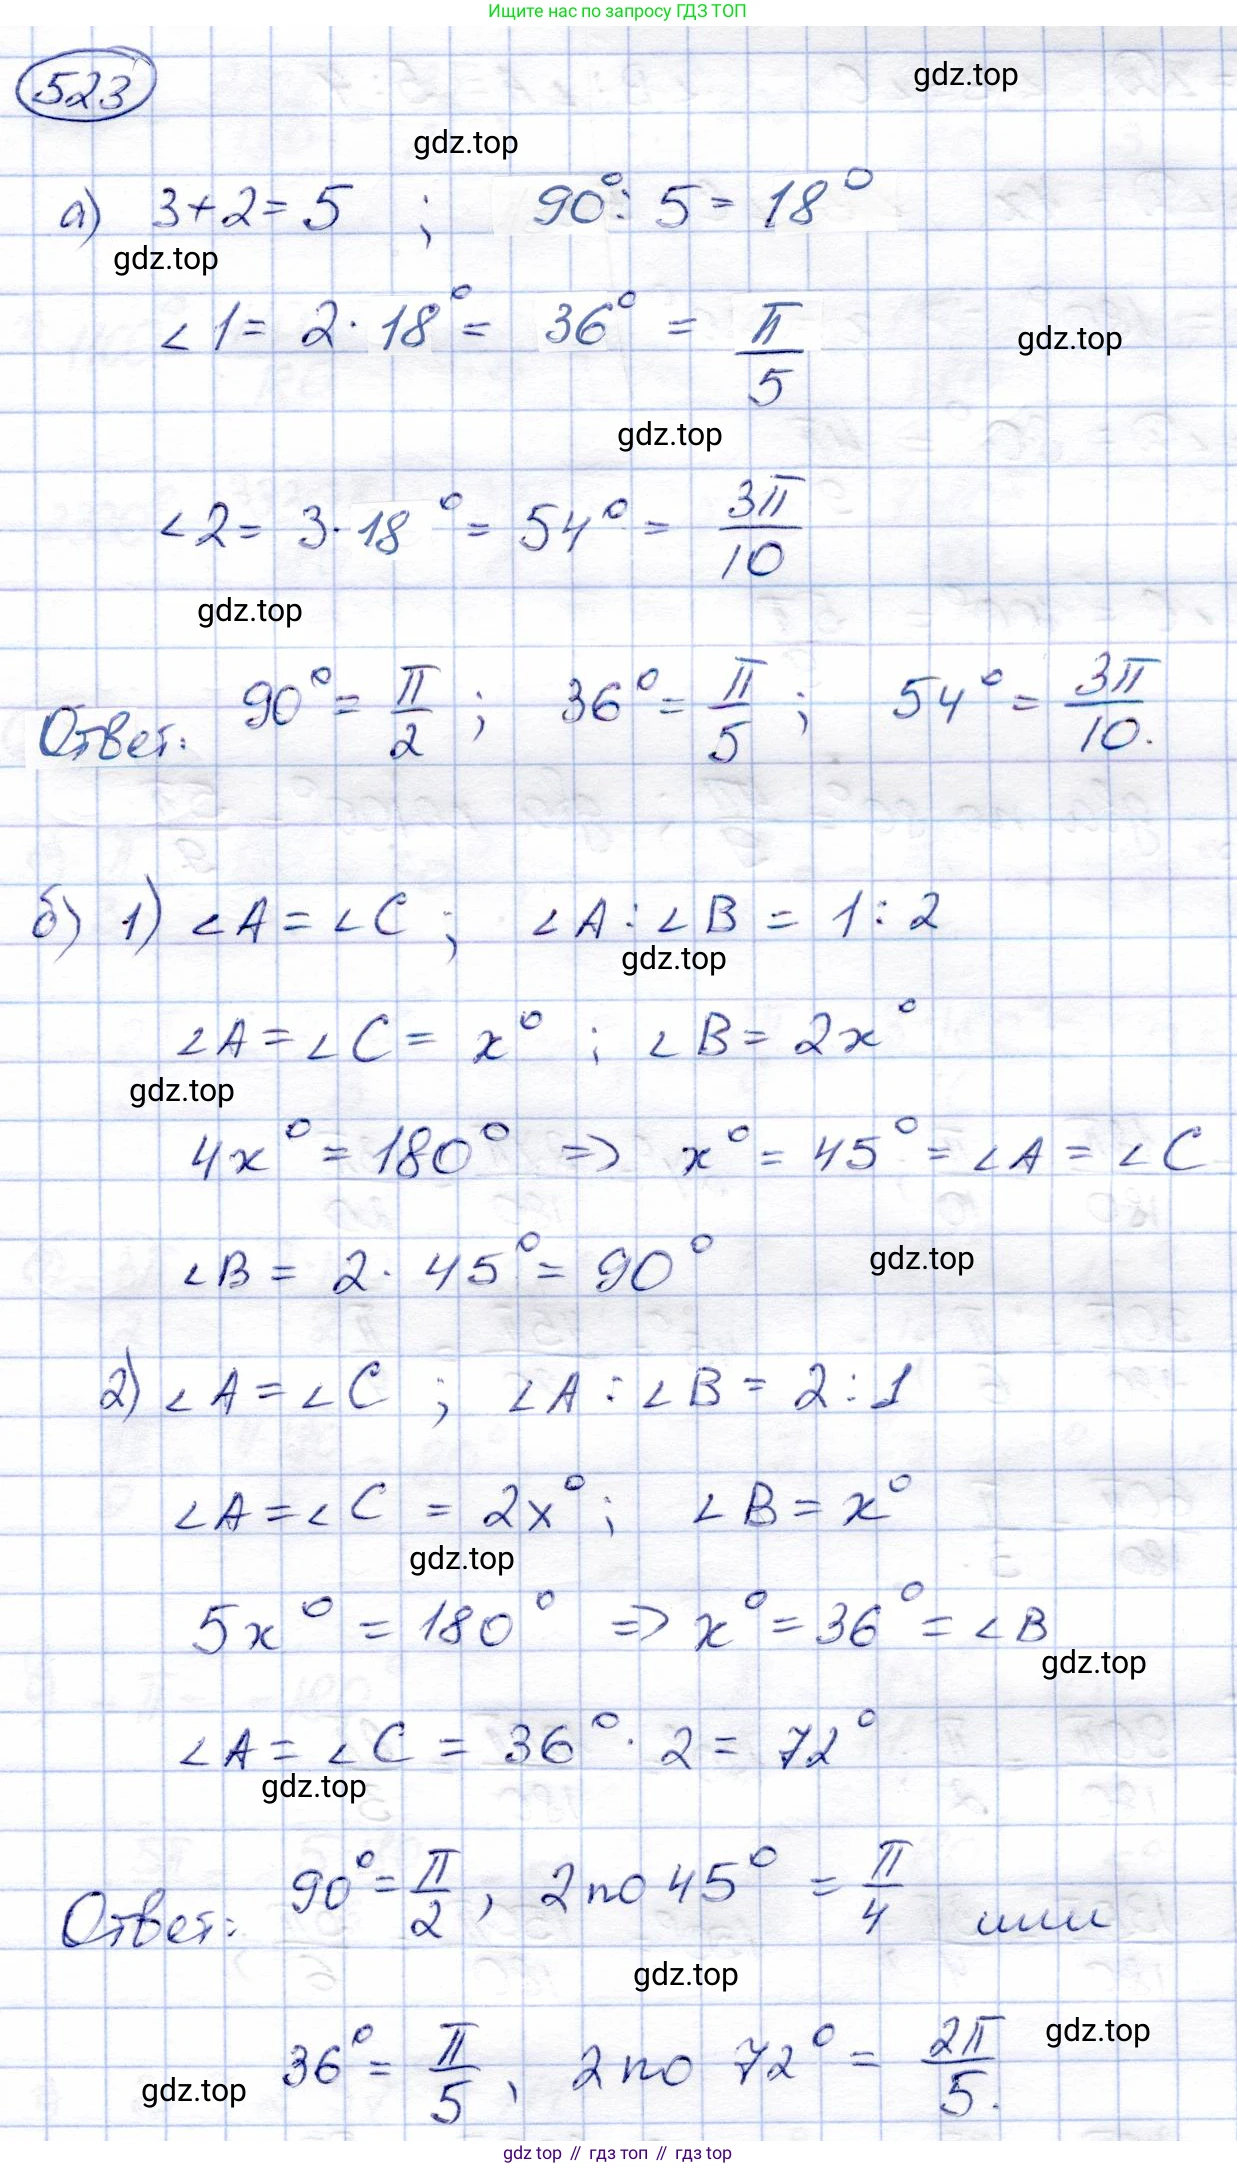 Ищите нас по запросу ГДЗ ТОП
523
gdz.top
gdz.top
а) 3+2=5 ; 90°: 5 = 18°
gdz.top
∠1 = 2·18° = 36° = π/5
gdz.top
gdz.top
∠2 = 3·18° = 54° = 3π/10
gdz.top
Ответ: 90° = π/2 ; 36° = π/5 ; 54° = 3π/10.
б) 1) ∠A = ∠C ; ∠A : ∠B = 1 : 2
gdz.top
∠A = ∠C = x° ; ∠B = 2x°
gdz.top
4x° = 180° => x° = 45° = ∠A = ∠C
∠B = 2 · 45° = 90°
gdz.top
2) ∠A = ∠C ; ∠A : ∠B = 2 : 1
∠A = ∠C = 2x° ; ∠B = x°
gdz.top
5x° = 180° => x° = 36° = ∠B
gdz.top
∠A = ∠C = 36° · 2 = 72°
gdz.top
Ответ: 90° = π/2 , 2 по 45° = π/4 или
gdz.top
36° = π/5 , 2 по 72° = 2π/5.
gdz.top
gdz.top
gdz top // гдз топ // гдз top